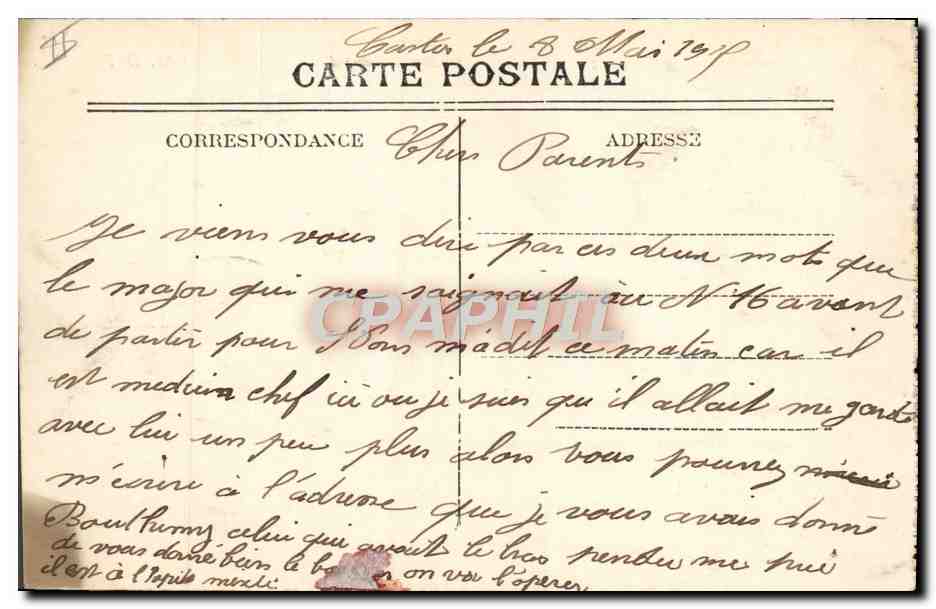 II
le 8 Mai
CARTE POSTALE
CORRESPONDANCE
ADRESSE
Chers Parents.
Je viens vous dire par ces deux mots que
le major qui me soignait au N 16 avant
de partir pour m'a dit ce matin car il
est medecin chef ici ou je suis qu'il allait me garder
avec lui un peu plus alors vous pourrez
m'écrire à l'adresse que je vous avais donné
celui qui avait le bras pendu me prie
de vous donné bien le on va l'opérer
il est à l'
CPAPHIL